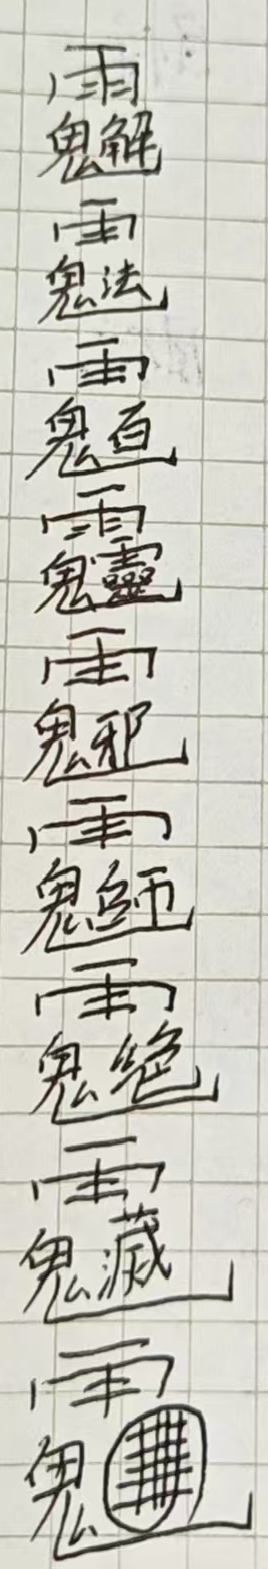 雨
鬼解
雨
鬼法
雨
鬼百
雨
鬼靈
雨
鬼邪
雨
鬼師
雨
鬼絕
雨
鬼滅
雨
鬼